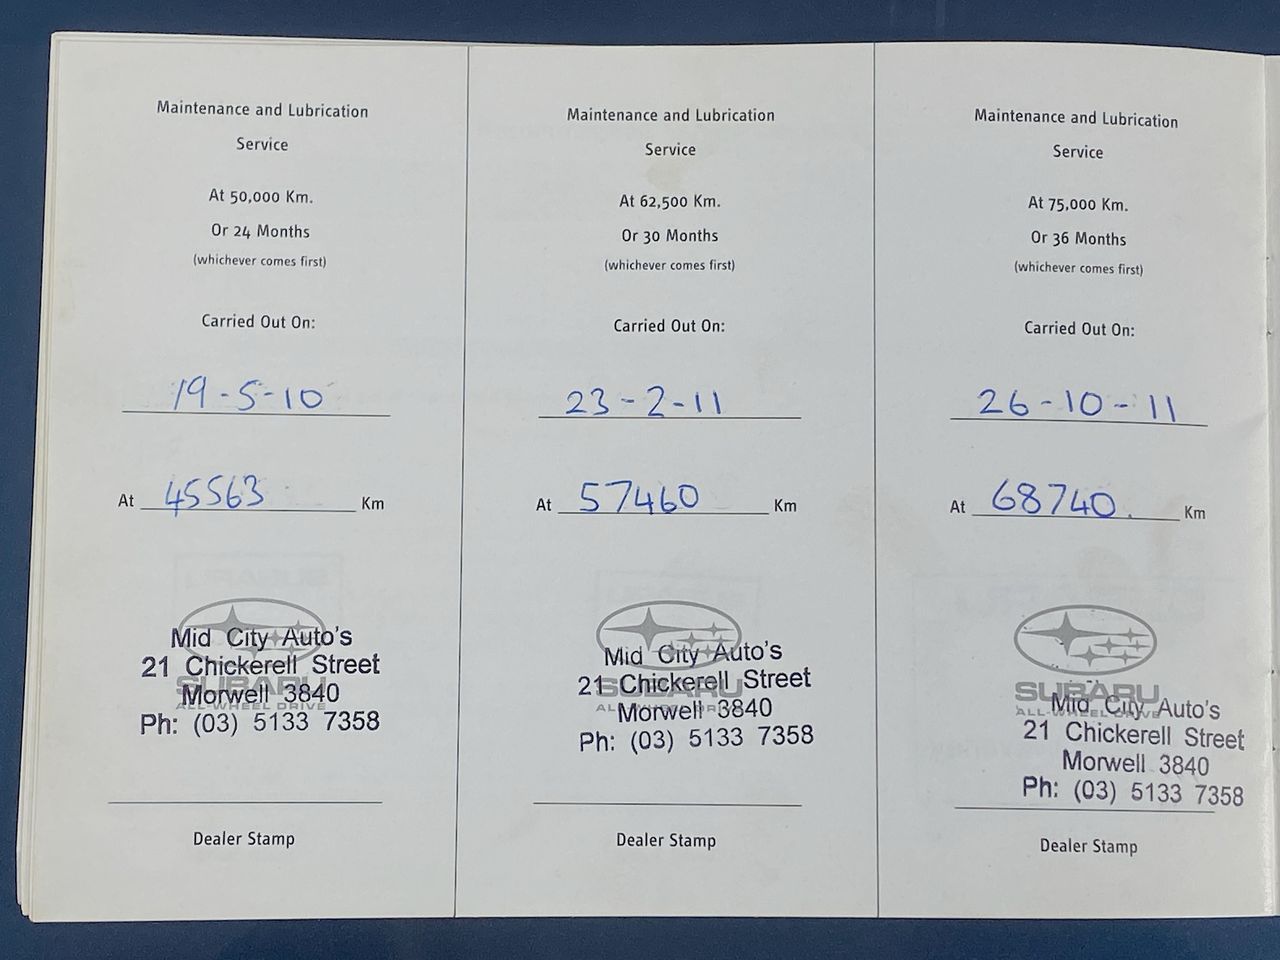 Maintenance and Lubrication
Service
At 50,000 Km.
Or 24 Months
(whichever comes first)
Carried Out On:
19-5-10
At 45563 Km
SUBARU
ALL-WHEEL DRIVE
Mid City Auto's
21 Chickerell Street
Morwell 3840
Ph: (03) 5133 7358
Dealer Stamp
Maintenance and Lubrication
Service
At 62,500 Km.
Or 30 Months
(whichever comes first)
Carried Out On:
23-2-11
At 57460 Km
SUBARU
ALL-WHEEL DRIVE
Mid City Auto's
21 Chickerell Street
Morwell 3840
Ph: (03) 5133 7358
Dealer Stamp
Maintenance and Lubrication
Service
At 75,000 Km.
Or 36 Months
(whichever comes first)
Carried Out On:
26-10-11
At 68740. Km
SUBARU
ALL-WHEEL DRIVE
Mid City Auto's
21 Chickerell Street
Morwell 3840
Ph: (03) 5133 7358
Dealer Stamp